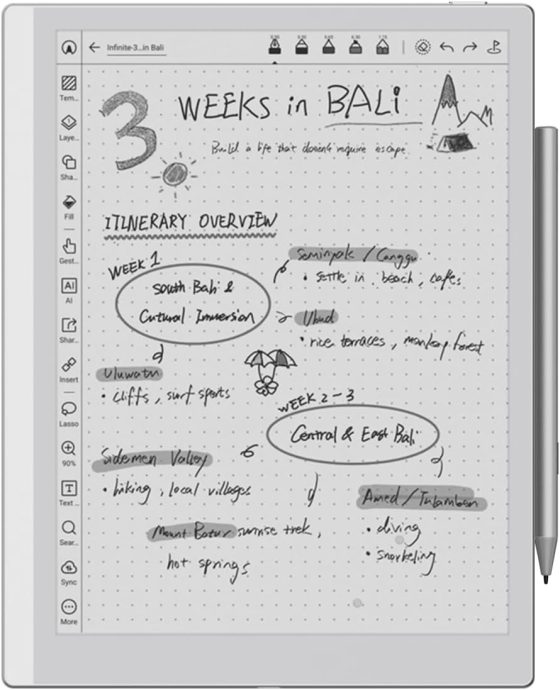 Infinite-3...in Bali
Tem...
Laye...
Sha...
Fill
Gest...
AI
AI
Shar...
Insert
Lasso
90%
T
Text...
Sear...
Sync
More
3 WEEKS in BALi
Build a life that doesn't require escape.
ITINERARY OVERVIEW
WEEK 1
South Bali &
Cutural Immersion
Seminyak / Canggu
• settle in, beach, cafes
Ubud
• rice terraces, monkey forest
Uluwatu
• cliffs, surf spots
WEEK 2-3
Central & East Bali
Sidemen Valley
• hiking, local villages
Mount Batur sunrise trek,
hot springs
Amed / Tulamben
• diving
• snorkeling